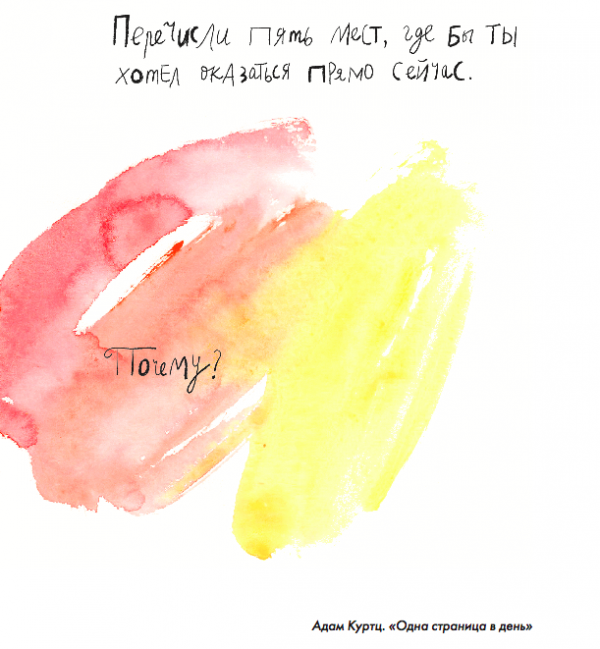 Перечисли пять мест, где бы ты
хотел оказаться прямо сейчас.
Почему?
Адам Куртц. «Одна страница в день»